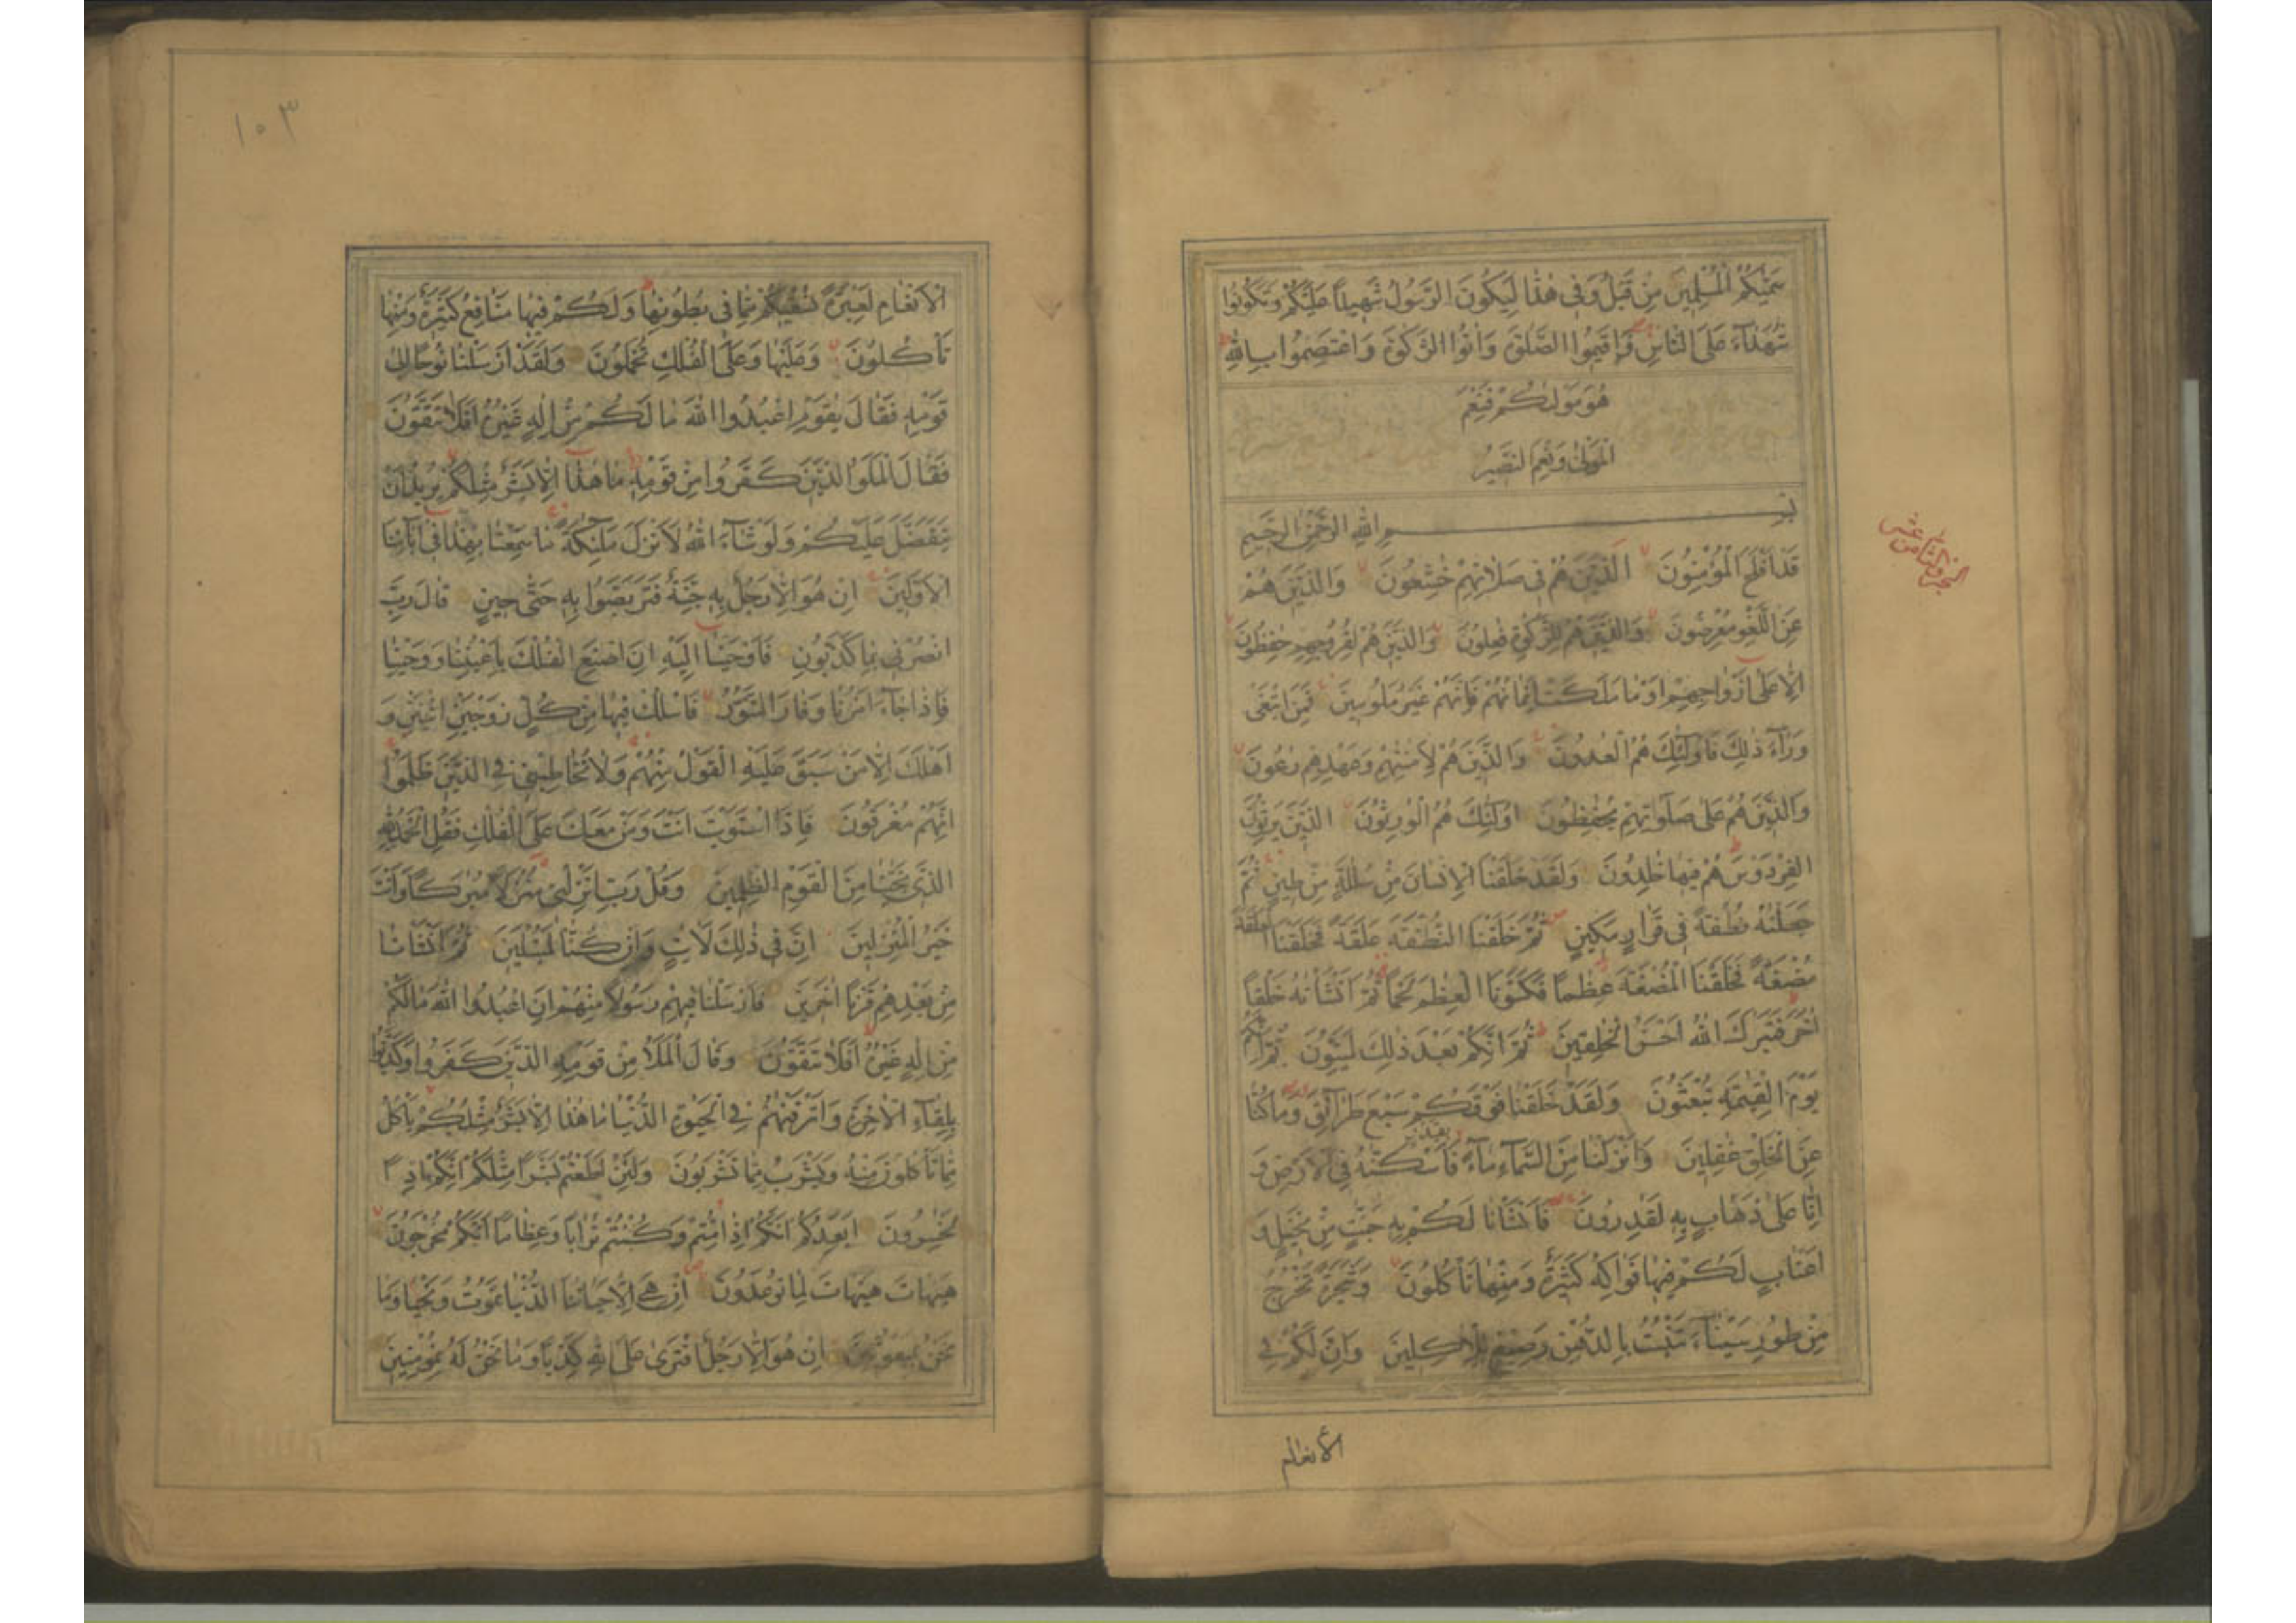 سَمّٰىكُمُ الْمُسْلِمِينَ مِنْ قَبْلُ وَفِي هٰذَا لِيَكُونَ الرَّسُولُ شَهِيدًا عَلَيْكُمْ وَتَكُونُوا
شُهَدَآءَ عَلَى النَّاسِ فَاَقِيمُوا الصَّلٰوةَ وَاٰتُوا الزَّكٰوةَ وَاعْتَصِمُوا بِاللّٰهِ
هُوَ مَوْلٰىكُمْ فَنِعْمَ
الْمَوْلٰى وَنِعْمَ النَّصِيرُ
بِسْمِ اللّٰهِ الرَّحْمٰنِ الرَّحِيمِ
قَدْ اَفْلَحَ الْمُؤْمِنُونَ الَّذِينَ هُمْ فِي صَلَاتِهِمْ خٰشِعُونَ وَالَّذِينَ هُمْ
عَنِ اللَّغْوِ مُعْرِضُونَ وَالَّذِينَ هُمْ لِلزَّكٰوةِ فٰعِلُونَ وَالَّذِينَ هُمْ لِفُرُوجِهِمْ حٰفِظُونَ
اِلَّا عَلٰى اَزْوَاجِهِمْ اَوْ مَا مَلَكَتْ اَيْمَانُهُمْ فَاِنَّهُمْ غَيْرُ مَلُومِينَ فَمَنِ ابْتَغٰى
وَرَآءَ ذٰلِكَ فَاُولٰٓئِكَ هُمُ الْعٰدُونَ وَالَّذِينَ هُمْ لِاَمٰنٰتِهِمْ وَعَهْدِهِمْ رٰعُونَ
وَالَّذِينَ هُمْ عَلٰى صَلَوَاتِهِمْ يُحَافِظُونَ اُولٰٓئِكَ هُمُ الْوٰرِثُونَ الَّذِينَ يَرِثُونَ
الْفِرْدَوْسَ هُمْ فِيهَا خٰلِدُونَ وَلَقَدْ خَلَقْنَا الْاِنْسَانَ مِنْ سُلٰلَةٍ مِنْ طِينٍ ثُمَّ
جَعَلْنٰهُ نُطْفَةً فِي قَرَارٍ مَكِينٍ ثُمَّ خَلَقْنَا النُّطْفَةَ عَلَقَةً فَخَلَقْنَا الْعَلَقَةَ
مُضْغَةً فَخَلَقْنَا الْمُضْغَةَ عِظٰمًا فَكَسَوْنَا الْعِظٰمَ لَحْمًا ثُمَّ اَنْشَاْنٰهُ خَلْقًا
اٰخَرَ فَتَبٰرَكَ اللّٰهُ اَحْسَنُ الْخٰلِقِينَ ثُمَّ اِنَّكُمْ بَعْدَ ذٰلِكَ لَمَيِّتُونَ ثُمَّ اِنَّكُمْ
يَوْمَ الْقِيٰمَةِ تُبْعَثُونَ وَلَقَدْ خَلَقْنَا فَوْقَكُمْ سَبْعَ طَرَآئِقَ وَمَا كُنَّا
عَنِ الْخَلْقِ غٰفِلِينَ وَاَنْزَلْنَا مِنَ السَّمَآءِ مَآءً بِقَدَرٍ فَاَسْكَنّٰهُ فِي الْاَرْضِ وَ
اِنَّا عَلٰى ذَهَابٍ بِهِ لَقٰدِرُونَ فَاَنْشَاْنَا لَكُمْ بِهِ جَنّٰتٍ مِنْ نَخِيلٍ وَ
اَعْنَابٍ لَكُمْ فِيهَا فَوَاكِهُ كَثِيرَةٌ وَمِنْهَا تَاْكُلُونَ وَشَجَرَةً تَخْرُجُ
مِنْ طُورِ سَيْنَآءَ تَنْبُتُ بِالدُّهْنِ وَصِبْغٍ لِلْاٰكِلِينَ وَاِنَّ لَكُمْ فِي
الانعام
الجزو الثامن عشر
١٠٣
الْاَنْعَامِ لَعِبْرَةً نُسْقِيكُمْ مِمَّا فِي بُطُونِهَا وَلَكُمْ فِيهَا مَنَافِعُ كَثِيرَةٌ وَمِنْهَا
تَاْكُلُونَ وَعَلَيْهَا وَعَلَى الْفُلْكِ تُحْمَلُونَ وَلَقَدْ اَرْسَلْنَا نُوحًا اِلٰى
قَوْمِهِ فَقَالَ يٰقَوْمِ اعْبُدُوا اللّٰهَ مَا لَكُمْ مِنْ اِلٰهٍ غَيْرُهُ اَفَلَا تَتَّقُونَ
فَقَالَ الْمَلَؤُا الَّذِينَ كَفَرُوا مِنْ قَوْمِهِ مَا هٰذَا اِلَّا بَشَرٌ مِثْلُكُمْ يُرِيدُ اَنْ
يَتَفَضَّلَ عَلَيْكُمْ وَلَوْ شَآءَ اللّٰهُ لَاَنْزَلَ مَلٰٓئِكَةً مَا سَمِعْنَا بِهٰذَا فِي اٰبَآئِنَا
الْاَوَّلِينَ اِنْ هُوَ اِلَّا رَجُلٌ بِهِ جِنَّةٌ فَتَرَبَّصُوا بِهِ حَتّٰى حِينٍ قَالَ رَبِّ
انْصُرْنِي بِمَا كَذَّبُونِ فَاَوْحَيْنَا اِلَيْهِ اَنِ اصْنَعِ الْفُلْكَ بِاَعْيُنِنَا وَوَحْيِنَا
فَاِذَا جَآءَ اَمْرُنَا وَفَارَ التَّنُّورُ فَاسْلُكْ فِيهَا مِنْ كُلٍّ زَوْجَيْنِ اثْنَيْنِ وَ
اَهْلَكَ اِلَّا مَنْ سَبَقَ عَلَيْهِ الْقَوْلُ مِنْهُمْ وَلَا تُخَاطِبْنِي فِي الَّذِينَ ظَلَمُوا
اِنَّهُمْ مُغْرَقُونَ فَاِذَا اسْتَوَيْتَ اَنْتَ وَمَنْ مَعَكَ عَلَى الْفُلْكِ فَقُلِ الْحَمْدُ لِلّٰهِ
الَّذِي نَجّٰىنَا مِنَ الْقَوْمِ الظّٰلِمِينَ وَقُلْ رَبِّ اَنْزِلْنِي مُنْزَلًا مُبٰرَكًا وَاَنْتَ
خَيْرُ الْمُنْزِلِينَ اِنَّ فِي ذٰلِكَ لَاٰيٰتٍ وَاِنْ كُنَّا لَمُبْتَلِينَ ثُمَّ اَنْشَاْنَا
مِنْ بَعْدِهِمْ قَرْنًا اٰخَرِينَ فَاَرْسَلْنَا فِيهِمْ رَسُولًا مِنْهُمْ اَنِ اعْبُدُوا اللّٰهَ مَا لَكُمْ
مِنْ اِلٰهٍ غَيْرُهُ اَفَلَا تَتَّقُونَ وَقَالَ الْمَلَاُ مِنْ قَوْمِهِ الَّذِينَ كَفَرُوا وَكَذَّبُوا
بِلِقَآءِ الْاٰخِرَةِ وَاَتْرَفْنٰهُمْ فِي الْحَيٰوةِ الدُّنْيَا مَا هٰذَا اِلَّا بَشَرٌ مِثْلُكُمْ يَاْكُلُ
مِمَّا تَاْكُلُونَ مِنْهُ وَيَشْرَبُ مِمَّا تَشْرَبُونَ وَلَئِنْ اَطَعْتُمْ بَشَرًا مِثْلَكُمْ اِنَّكُمْ اِذًا
لَخٰسِرُونَ اَيَعِدُكُمْ اَنَّكُمْ اِذَا مِتُّمْ وَكُنْتُمْ تُرَابًا وَعِظَامًا اَنَّكُمْ مُخْرَجُونَ
هَيْهَاتَ هَيْهَاتَ لِمَا تُوعَدُونَ اِنْ هِيَ اِلَّا حَيَاتُنَا الدُّنْيَا نَمُوتُ وَنَحْيَا وَمَا
نَحْنُ بِمَبْعُوثِينَ اِنْ هُوَ اِلَّا رَجُلٌ افْتَرٰى عَلَى اللّٰهِ كَذِبًا وَمَا نَحْنُ لَهُ بِمُؤْمِنِينَ